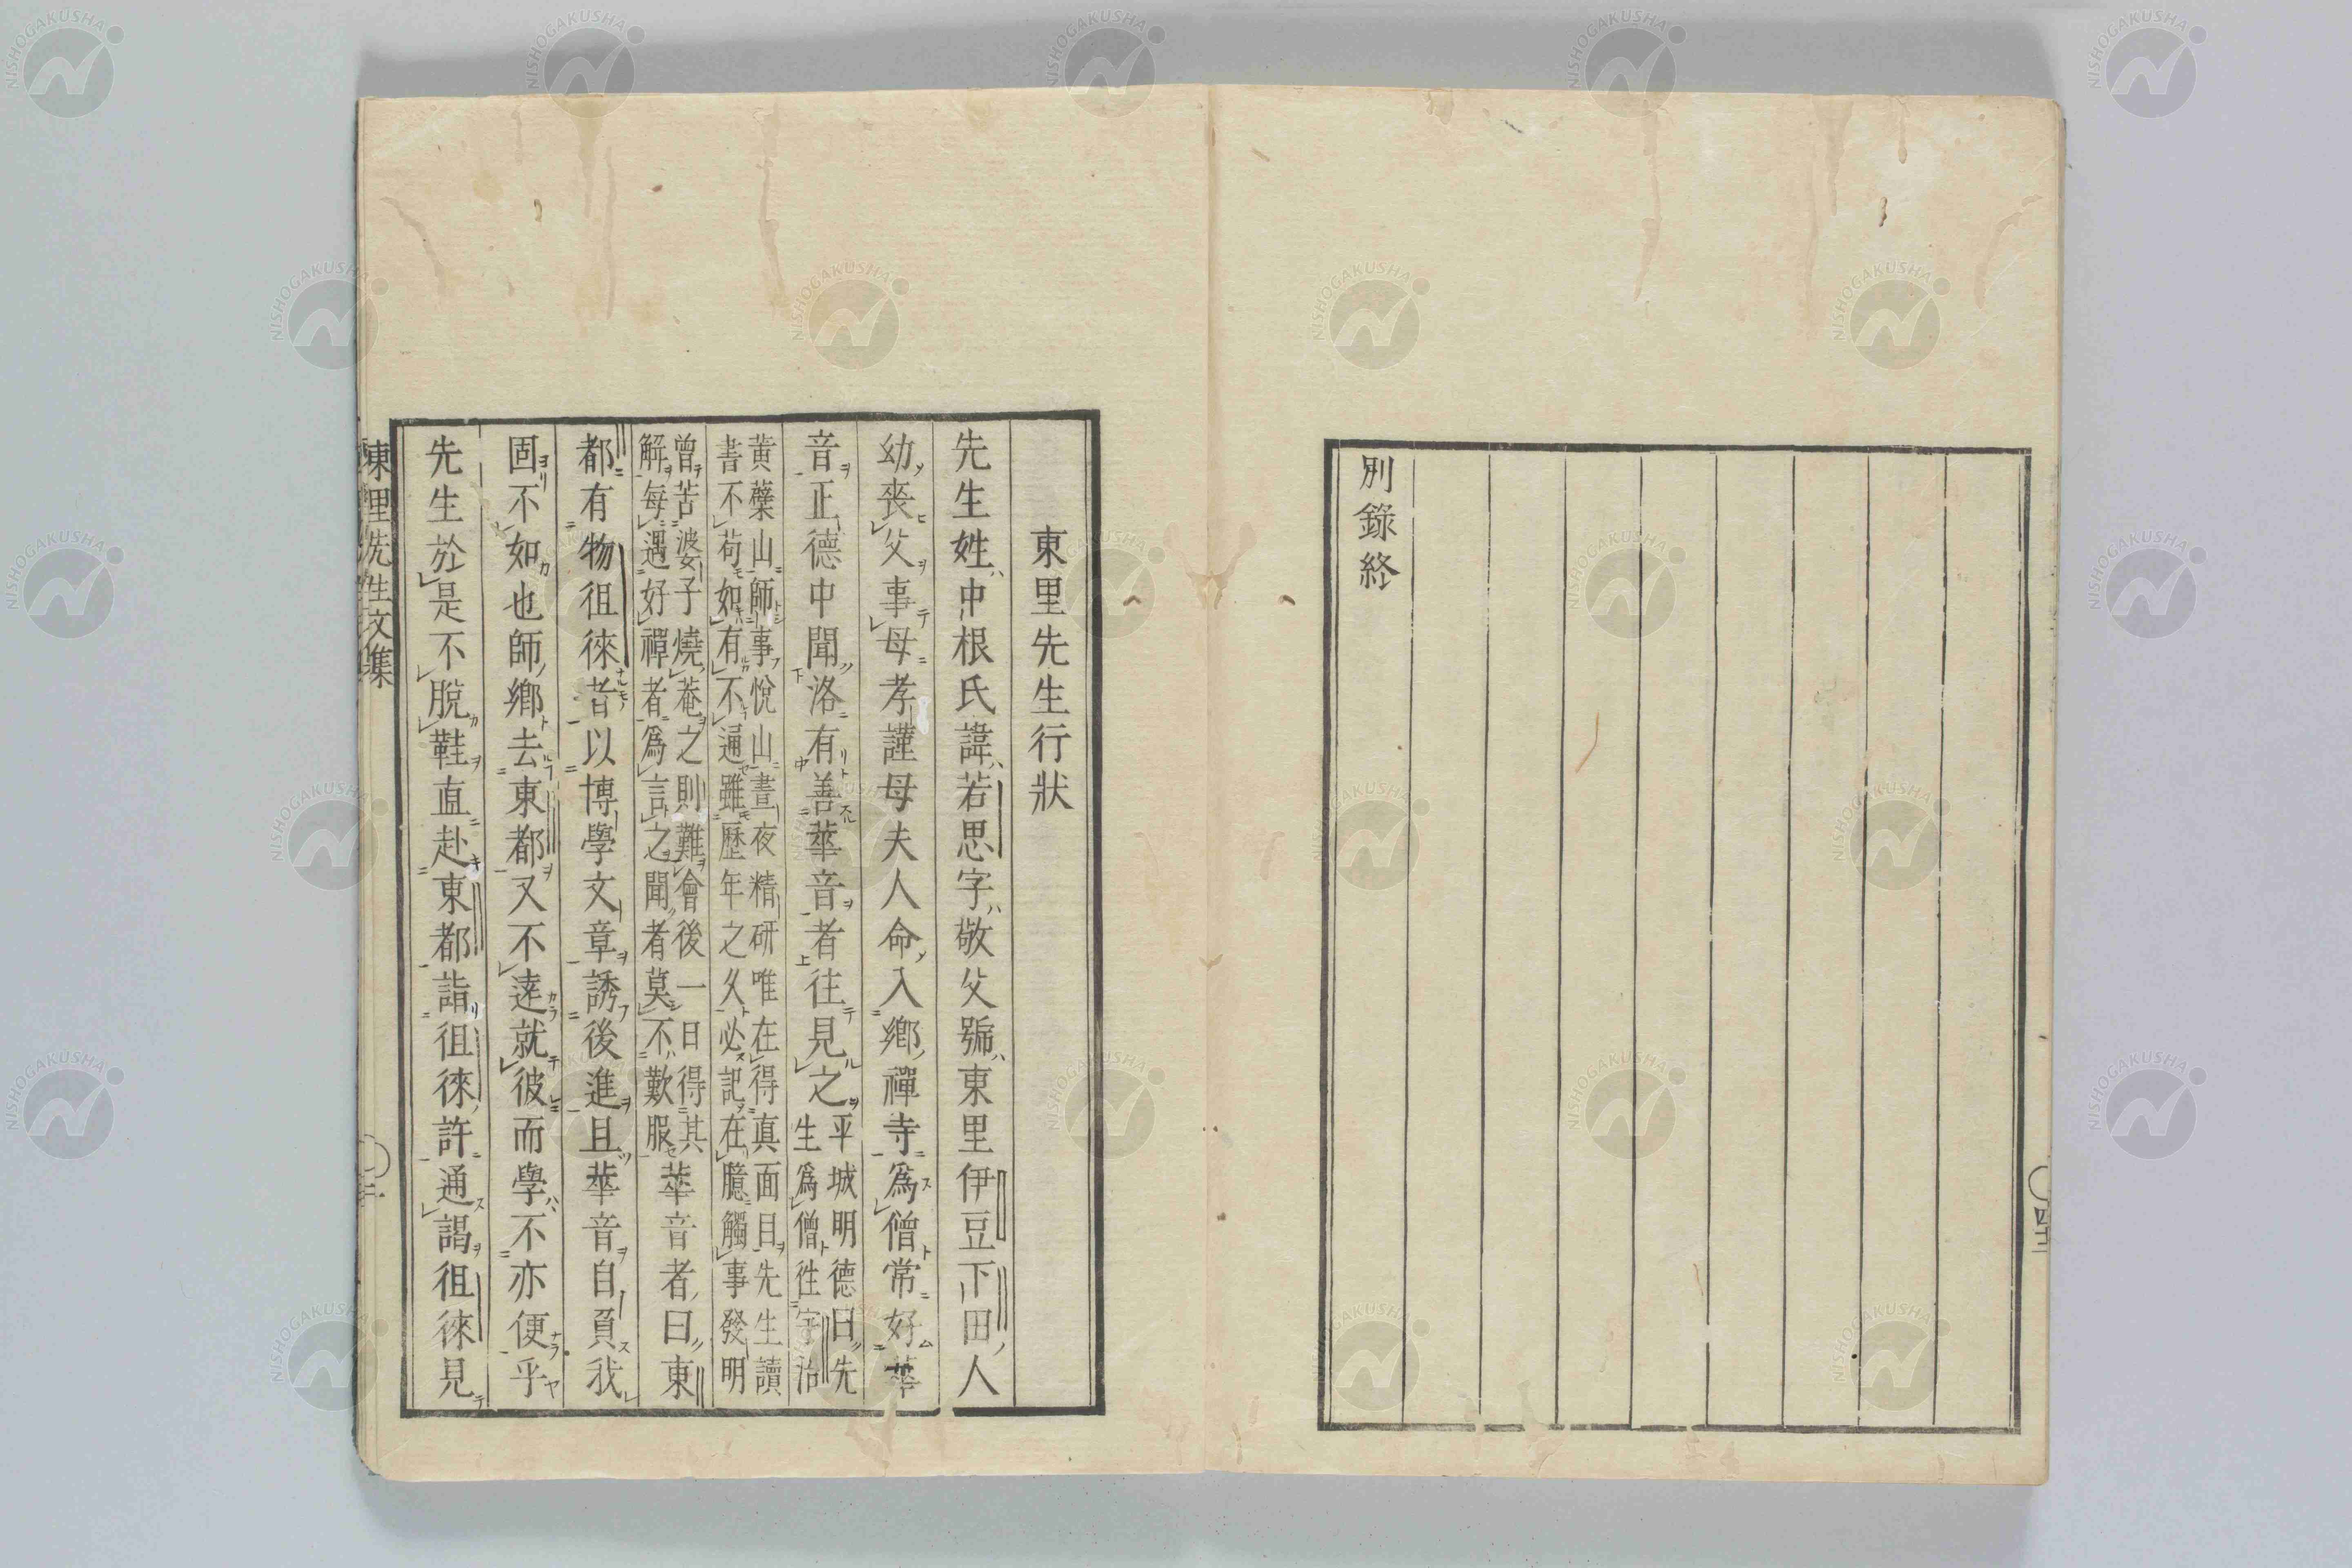 別錄終
東里先生行狀
先生姓中根氏諱若思字敬父號東里伊豆下田人
幼喪父事母孝謹母夫人命入鄉禪寺爲僧常好華
音正德中聞洛有善華音者往見之
平城明德曰先
生爲僧徃宇治
黄蘗山師事悅山晝夜精研唯在得真面目先生讀
書不苟如有不通雖歷年之久必記在臆觸事發明
曾苦婆子燒菴之則難會後一日得其
解每遇好禪者爲言之聞者莫不歎服
華音者曰東
都有物徂徠者以博學文章誘後進且華音自負我
固不如也師鄉去東都又不遠就彼而學不亦便乎
先生於是不脫鞋直赴東都詣徂徠許通謁徂徠見
東里先生文集
NISHOGAKUSHA